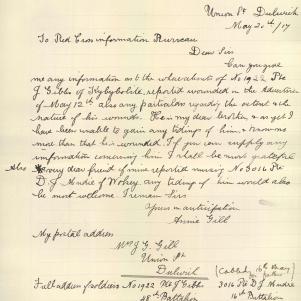 Union St Dulwich
May 20th/17
To Red Cross information Bureau
Dear Sir
Can you give
me any information as to the whereabouts of No 1922 Pte
J Gibbs of Kybybolite, reported wounded in the Advertiser
of May 12th also any particulars regarding the extent & the
nature of his wounds. He is my dear brother & as yet I
have been unable to gain any tidings of him, & know no
more than that he is wounded. If you can supply any
information concerning him I shall be most grateful
Also very dear friend of mine reported missing No 3016 Pte
D. J. Andre of any tidings of him would also
be most welcome I remain Sir
Yours in anticipation
Annie Gill
My postal address
Mrs J. G. Gill
Union St
Dulwich
(Cabled 16th May
Full address of soldiers No 1922 Pte J Gibbs 3016 Pte D J Andre
48th Battalion 16th Battalion